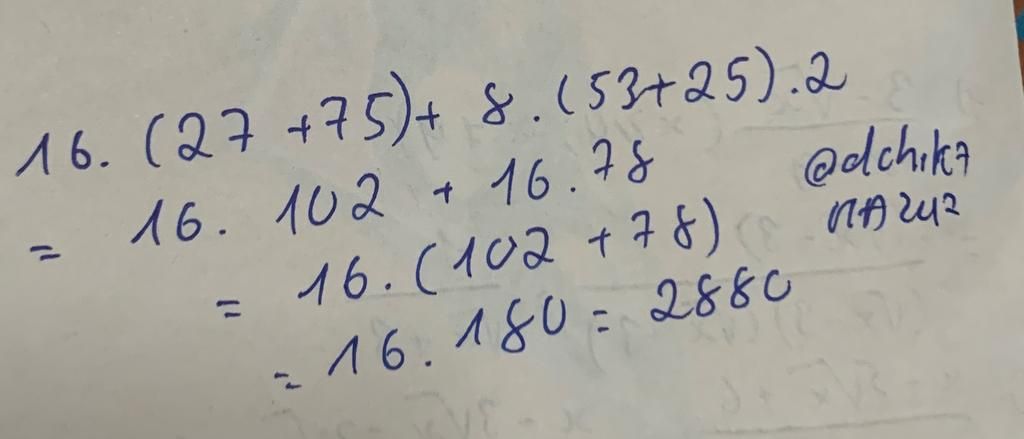 16. (27 +75)+ 8. (53+25).2
= 16. 102 + 16.78
= 16.(102 +78)
= 16. 180 = 2880